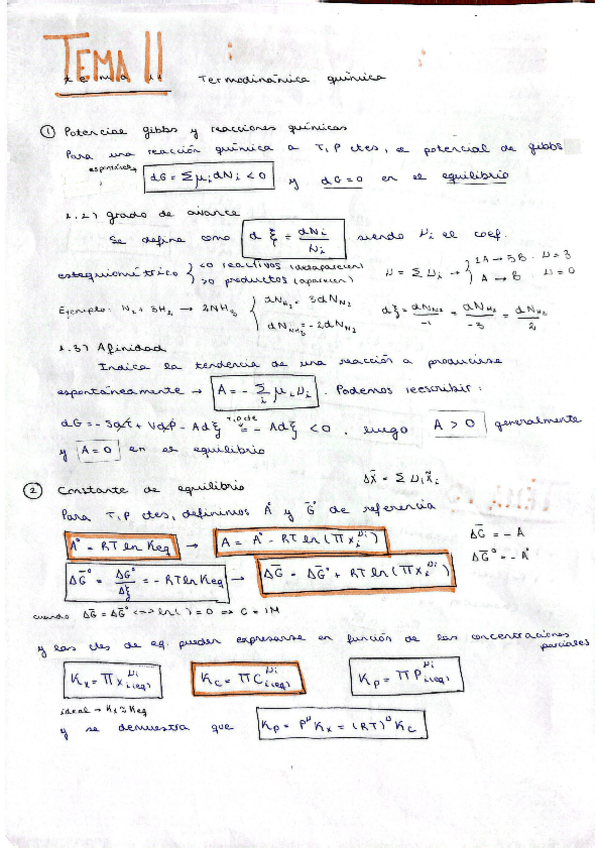 TEMA 11
tema 11 Termodinámica química
① Potencial gibbs y reacciones químicas
Para una reacción química a T, P ctes, el potencial de gibbs
espontánea→ dG = Σμi dNi < 0 y dG = 0 en el equilibrio
1.2) grado de avance
Se define como dξ = dNi/νi siendo νi el coef.
estequiométrico { <0 reactivos (desaparecen) >0 productos (aparecen) ν = Σνi → { 1A → 3B . ν = 3 A → B . ν = 0
Ejemplo: N2 + 3H2 → 2NH3 { dNH2 = 3dNN2 dNNH3 = -2dNN2 dξ = dNN2/-1 = dNH2/-3 = dNNH3/2
1.3) Afinidad
Indica la tendencia de una reacción a producirse
espontáneamente → A = - Σi μi νi . Podemos reescribir:
dG = -SdT + VdP - Adξ = (T, P cte) - Adξ < 0 . Luego A > 0 generalmente
y A = 0 en el equilibrio
Δx̄ = Σ νi x̄i
② Constante de equilibrio
Para T, P ctes, definimos A° y Ḡ° de referencia
A° = RT ln Keq → A = A° - RT ln (Π xi^νi) ΔḠ = - A
ΔḠ° = - A°
ΔḠ° = ΔG°/Δξ = - RT ln Keq → ΔḠ = ΔḠ° + RT ln (Π xi^νi)
cuando ΔḠ = ΔḠ° <=> ln( ) = 0 => C = 1M
y las ctes de eq. pueden expresarse en función de las concentraciones
parciales
Kx = Π xi(eq)^νi Kc = Π Ci(eq)^νi Kp = Π Pi(eq)^νi
ideal → Kx = Keq
y se demuestra que Kp = P^ν Kx = (RT)^ν Kc